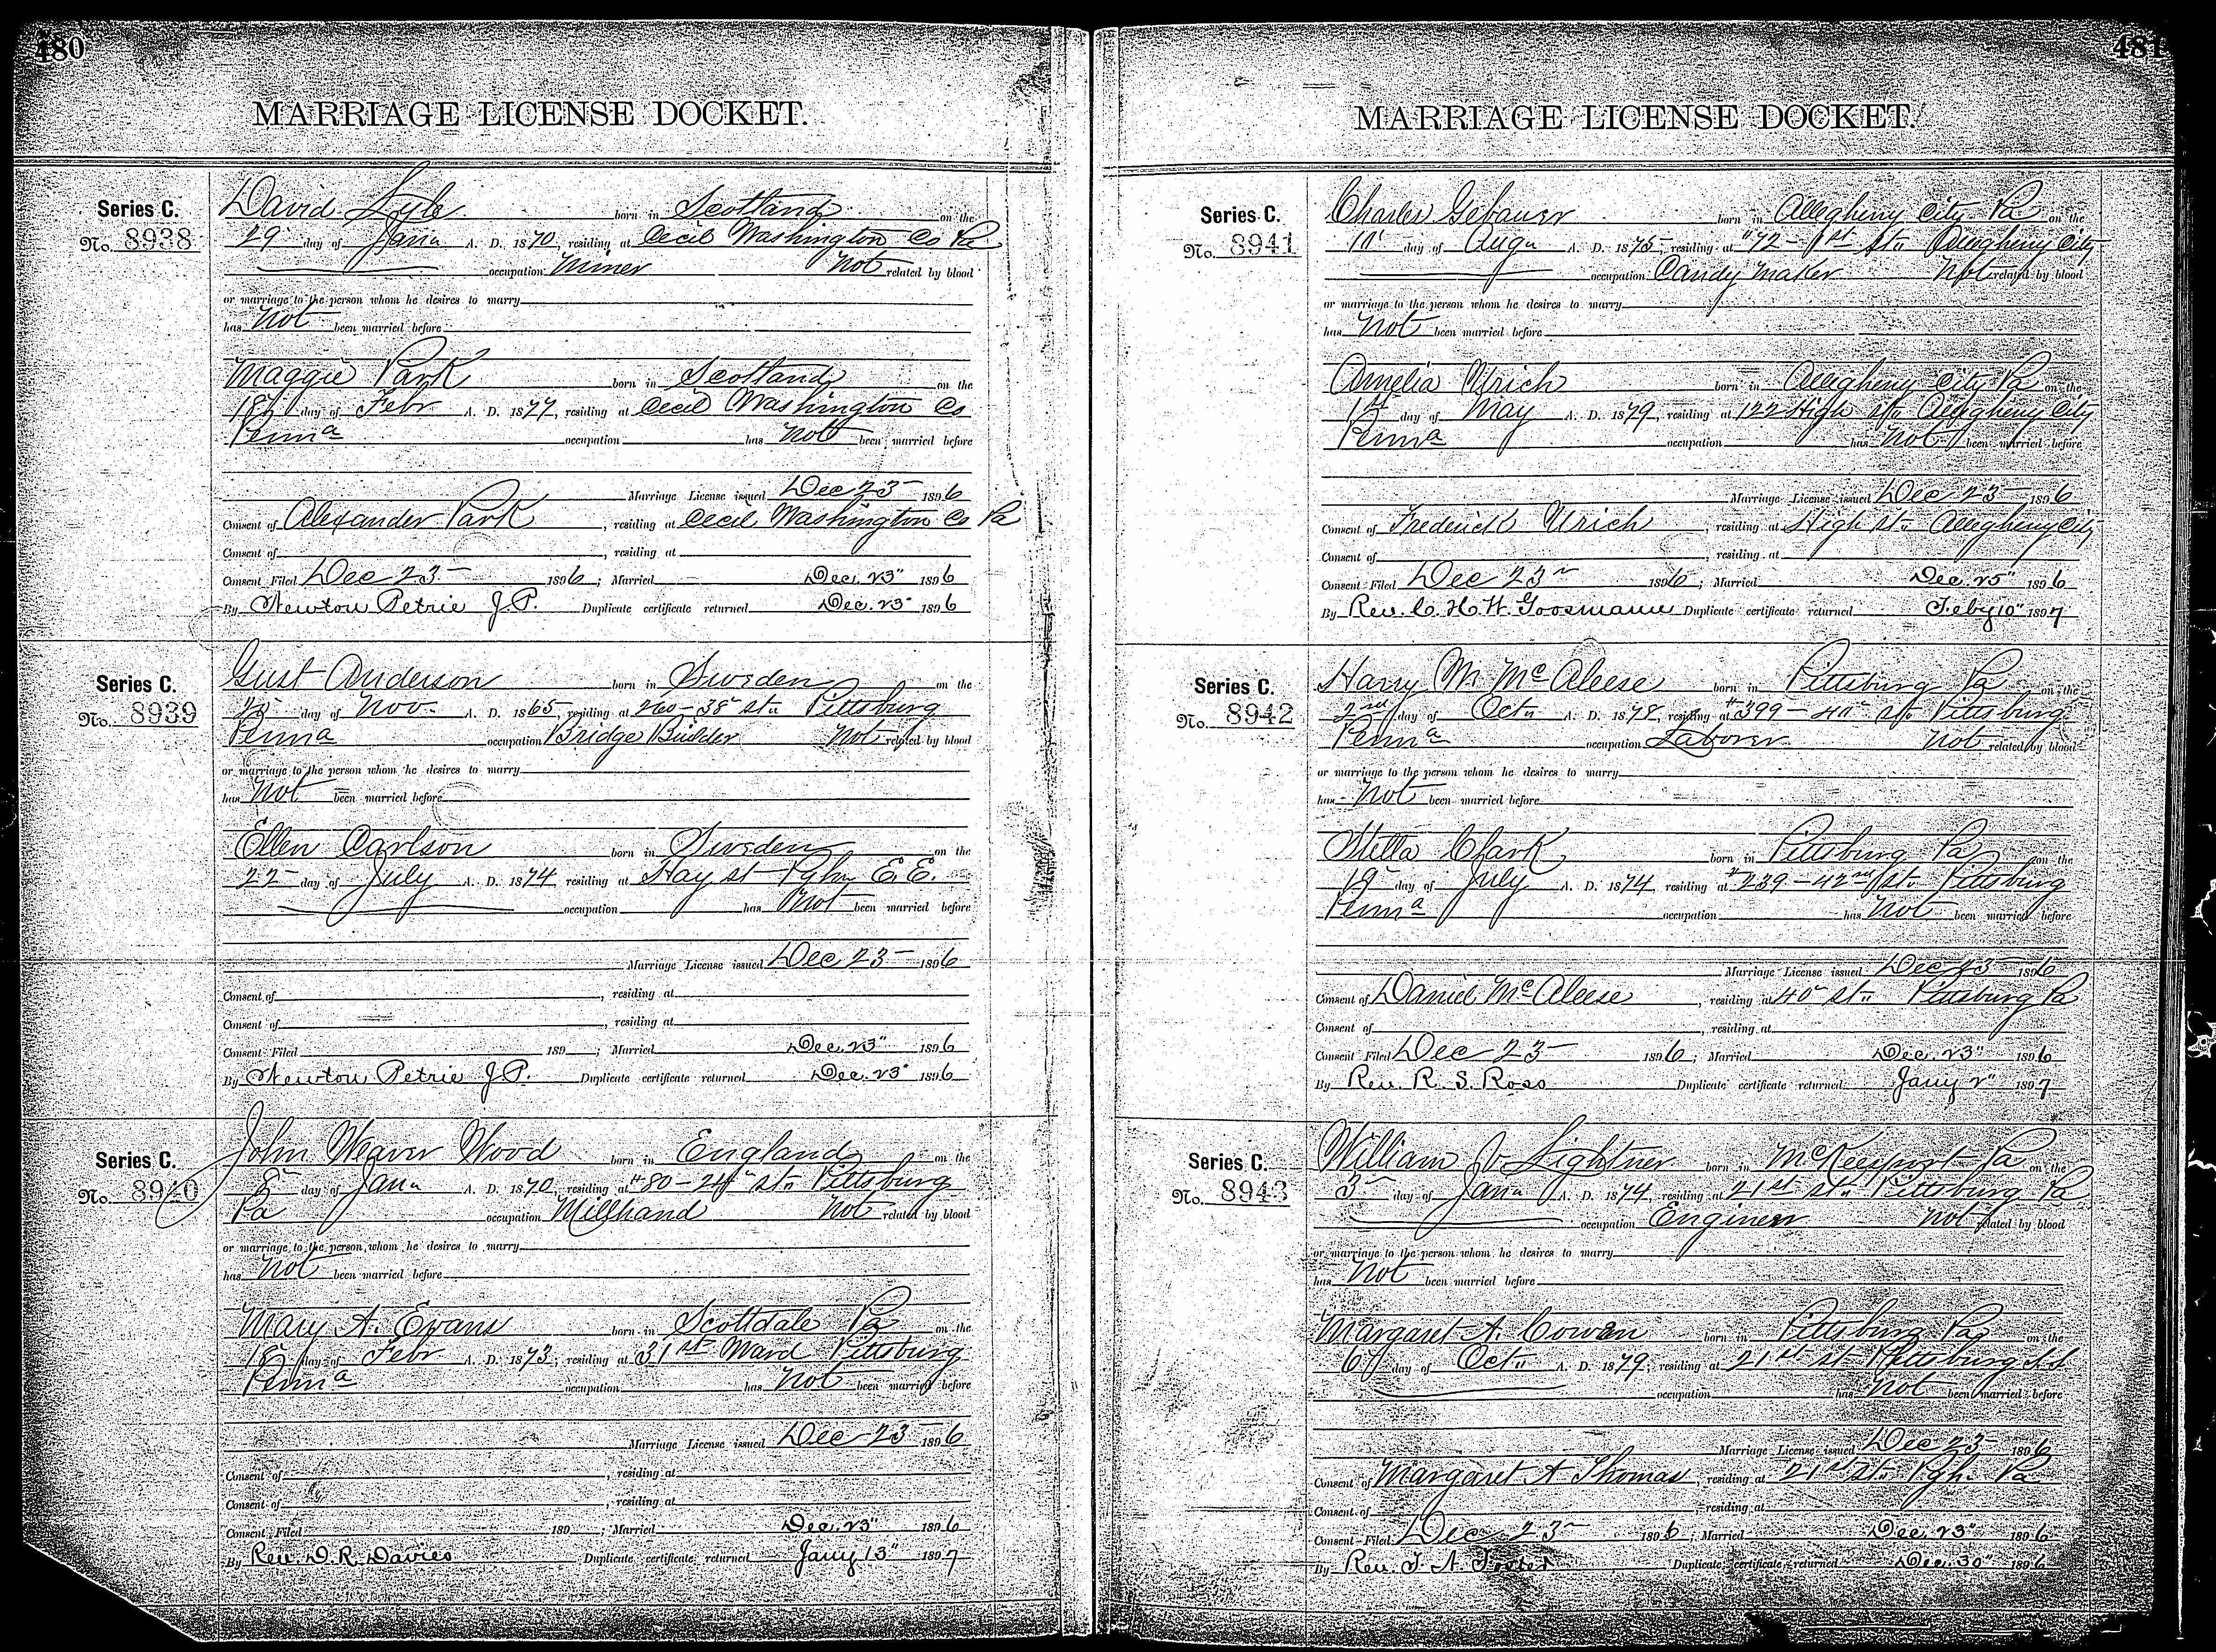 480
MARRIAGE LICENSE DOCKET.
Series C.
No. 8938
David Lyle born in Scotland on the
29 day of Jany A. D. 1870, residing at Cecil Washington Co Pa
occupation Miner Not related by blood
or marriage to the person whom he desires to marry
has Not been married before
Maggie Park born in Scotland on the
18 day of Febr A. D. 1877, residing at Cecil Washington Co
Penna occupation has Not been married before
Marriage License issued Dec 23 1896
Consent of Alexander Park, residing at Cecil Washington Co Pa
Consent of , residing at
Consent Filed Dec 23 1896; Married Dec. 23" 1896
By Newton Petrie J.P. Duplicate certificate returned Dec. 23" 1896
Series C.
No. 8939
Gust Anderson born in Sweden on the
day of Nov. A. D. 1865, residing at 260-38" St" Pittsburg
Penna occupation Bridge Builder Not related by blood
or marriage to the person whom he desires to marry
has Not been married before
Ellen Carlson born in Sweden on the
22 day of July A. D. 1874, residing at Hay st Pgh E. E.
occupation has Not been married before
Marriage License issued Dec 23 1896
Consent of , residing at
Consent of , residing at
Consent Filed 189 ; Married Dec. 23" 1896
By Newton Petrie J.P. Duplicate certificate returned Dec. 23" 1896
Series C.
No. 8940
John Weaver Wood born in England on the
8" day of Jany A. D. 1870, residing at #80-24" St" Pittsburg
Pa occupation Millhand Not related by blood
or marriage to the person whom he desires to marry
has Not been married before
Mary A. Evans born in Scottdale Pa on the
18 day of Febr A. D. 1873, residing at 31st Ward Pittsburg
Penna occupation has Not been married before
Marriage License issued Dec 23 1896
Consent of , residing at
Consent of , residing at
Consent Filed 189 ; Married Dec. 23" 1896
By Rev. D. R. Davies Duplicate certificate returned Jany 13" 1897
481
MARRIAGE LICENSE DOCKET.
Series C.
No. 8941
Charles Gebauer born in Allegheny City Pa on the
10" day of Augu A. D. 1875, residing at #72-1st St" Allegheny City
occupation Candy Maker Not related by blood
or marriage to the person whom he desires to marry
has Not been married before
Amelia Ulrich born in Allegheny City Pa on the
day of May A. D. 1879, residing at 122 High St" Allegheny City
Penna occupation has Not been married before
Marriage License issued Dec 23 1896
Consent of Frederick Ulrich, residing at High St" Allegheny City
Consent of , residing at
Consent Filed Dec 23" 1896; Married Dec. 25" 1896
By Rev. C. H. W. Goosmann Duplicate certificate returned Feby 10" 1897
Series C.
No. 8942
Harry M. McAleese born in Pittsburg Pa on the
2nd day of Oct" A. D. 1878, residing at #399-40" St" Pittsburg
Penna occupation Laborer Not related by blood
or marriage to the person whom he desires to marry
has Not been married before
Stella Clark born in Pittsburg Pa on the
19" day of July A. D. 1874, residing at #239-42nd St" Pittsburg
Penna occupation has Not been married before
Marriage License issued Dec 23 1896
Consent of Daniel McAleese, residing at 40" St" Pittsburg Pa
Consent of , residing at
Consent Filed Dec 23 1896; Married Dec. 23" 1896
By Rev. R. S. Ross Duplicate certificate returned Jany 2" 1897
Series C.
No. 8943
William V. Lightner born in McKeesport Pa on the
3" day of Jany A. D. 1874, residing at 21st St" Pittsburg Pa
occupation Engineer Not related by blood
or marriage to the person whom he desires to marry
has Not been married before
Margaret A. Cowan born in Pittsburg Pa on the
6" day of Oct" A. D. 1879, residing at 21st St Pittsburg S.S.
occupation has Not been married before
Marriage License issued Dec 23 1896
Consent of Margaret A Thomas, residing at 21st St" Pgh. Pa
Consent of , residing at
Consent Filed Dec 23" 1896; Married Dec. 23" 1896
By Rev. T. N. Duplicate certificate returned Dec. 30" 1896